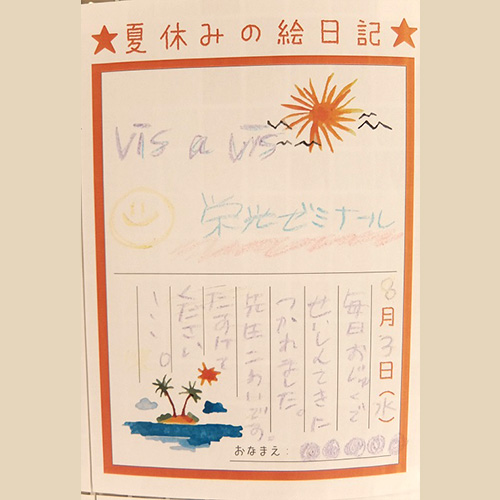 ★夏休みの絵日記★
Vis a Vis
栄光ゼミナール
8月3日(水)
毎日おじゅくで
せいしんてきに
つかれました。
先生こわいです。
たすけて
ください
おなまえ: